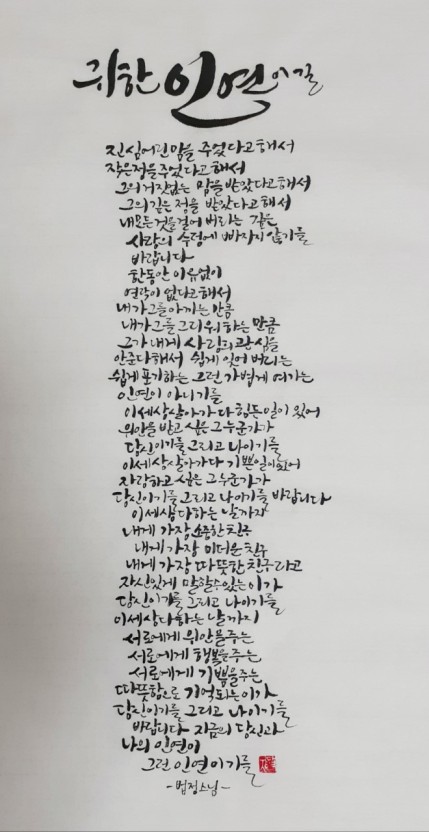 귀한 인연이길
진심어린맘을 주었다고해서
작은정을주었다고해서
그의거짓없는 맘을받았다고해서
그의깊은 정을 받았다고해서
내모든것을걸어 버리는 깊은
사랑의 수렁에 빠지지 않기를
바랍니다
한동안 이유없이
연락이 없다고해서
내가그를아끼는 만큼
내가그를그리워 하는 만큼
그가 내게 사랑의관심을
안준다해서 쉽게 잊어버리는
쉽게포기하는 그런 가볍게 여기는
인연이 아니기를
이세상살아가다 힘든일이 있어
위안을 받고 싶은 그누군가가
당신이기를 그리고 나이기를
이세상살아가다 기쁜일이있어
자랑하고 싶은 그누군가가
당신이기를 그리고 나이기를 바랍니다
이세상다하는 날까지
내게 가장 소중한친구
내게 가장 미더운친구
내게 가장 따뜻한친구라고
자신있게 말할수있는이가
당신이기를 그리고 나이기를
이세상다하는 날까지
서로에게 위안을주는
서로에게 행복을주는
서로에게 기쁨을주는
따뜻함으로 기억되는이가
당신이기를 그리고 나이기를
바랍니다 지금의 당신과
나의 인연이
그런 인연이기를
-법정스님-